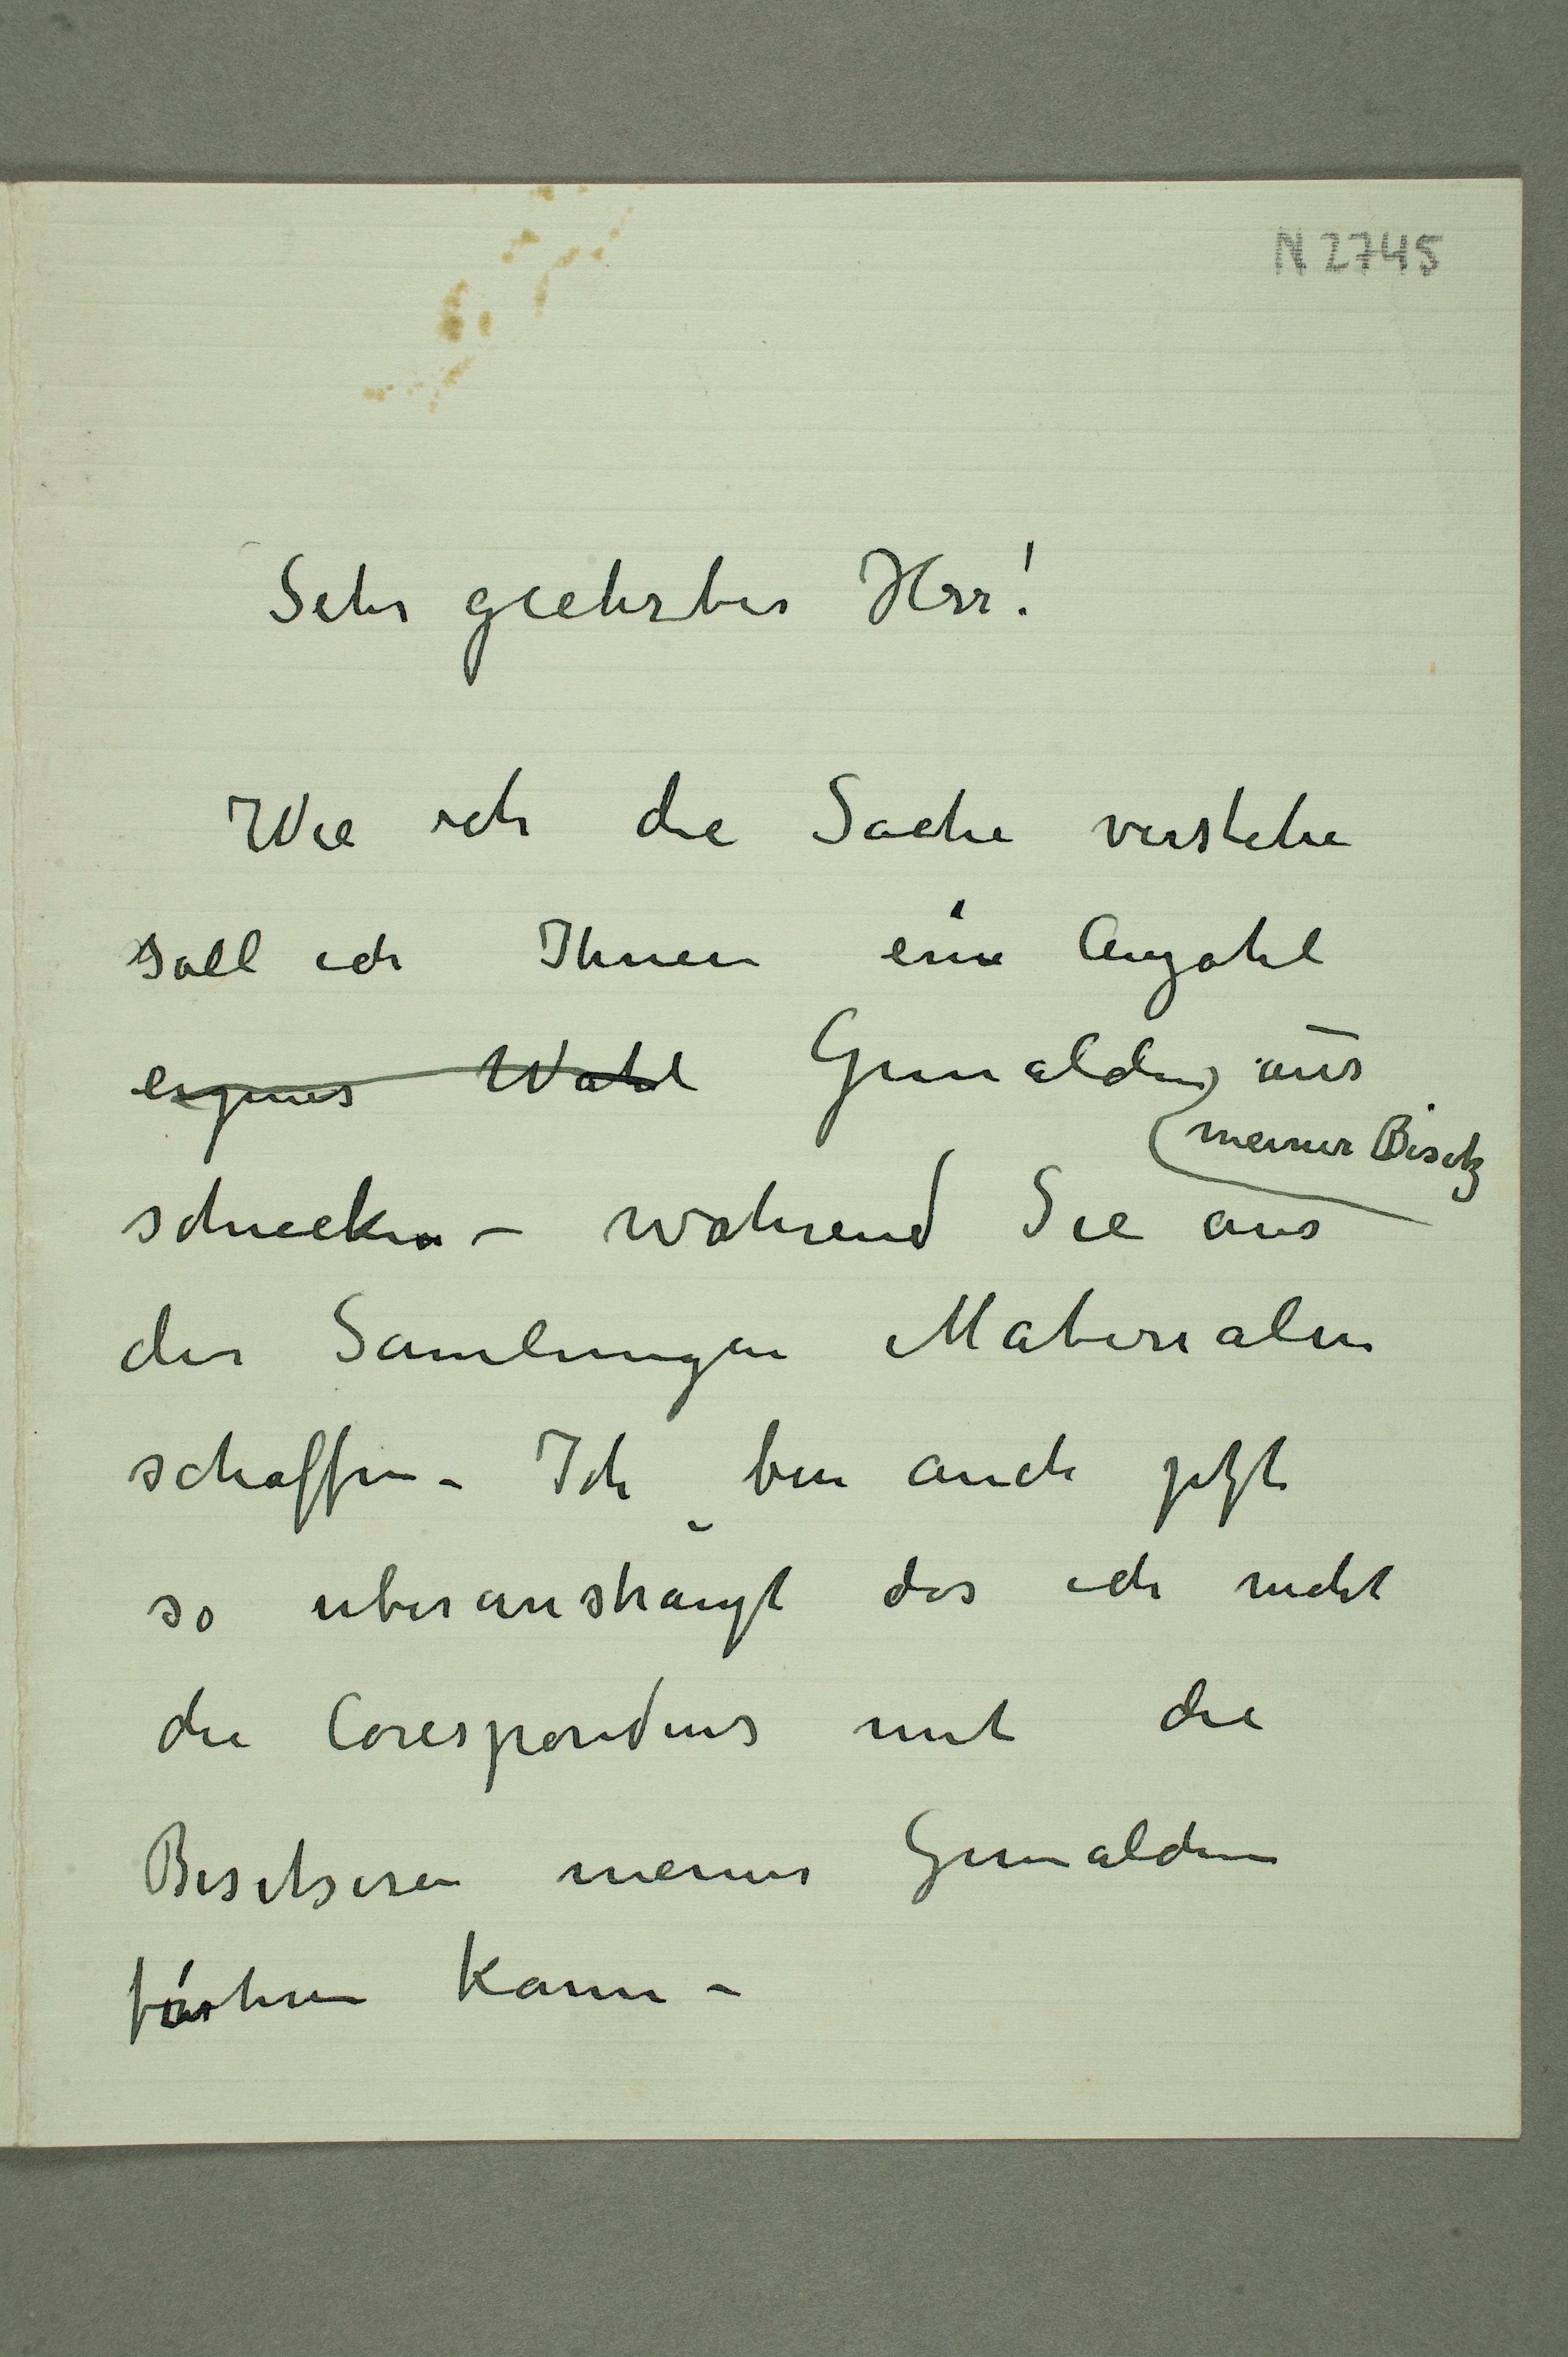 N 2745
Sehr geehrter Herr!
Wie ich die Sache verstehe
soll ich Ihnen eine Anzahl
eigener Wahl Gemälden aus
meiner Besitz
schicken – während Sie aus
der Samlungen Materialen
schaffen – Ich bin auch jetzt
so uberansträngt das ich nicht
die Corespondens mit die
Besitseren meiner Gemälden
führen kann –